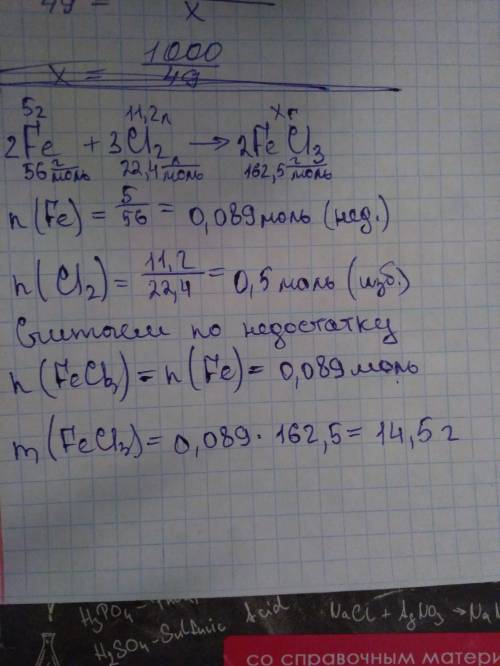 49 =
x
x = 1000
49
5г 11,2л xг
2Fe + 3Cl₂ → 2FeCl₃
56 г/моль 22,4 л/моль 162,5 г/моль
n(Fe) = 5/56 = 0,089 моль (нед.)
n(Cl₂) = 11,2/22,4 = 0,5 моль (изб.)
Считаем по недостатку
n(FeCl₃) = n(Fe) = 0,089 моль
m(FeCl₃) = 0,089 · 162,5 = 14,5 г
H₃PO₄ -
H₂SO₄ - Sulfuric Acid
NaCl + AgNO₃ → Na
со справочным матери